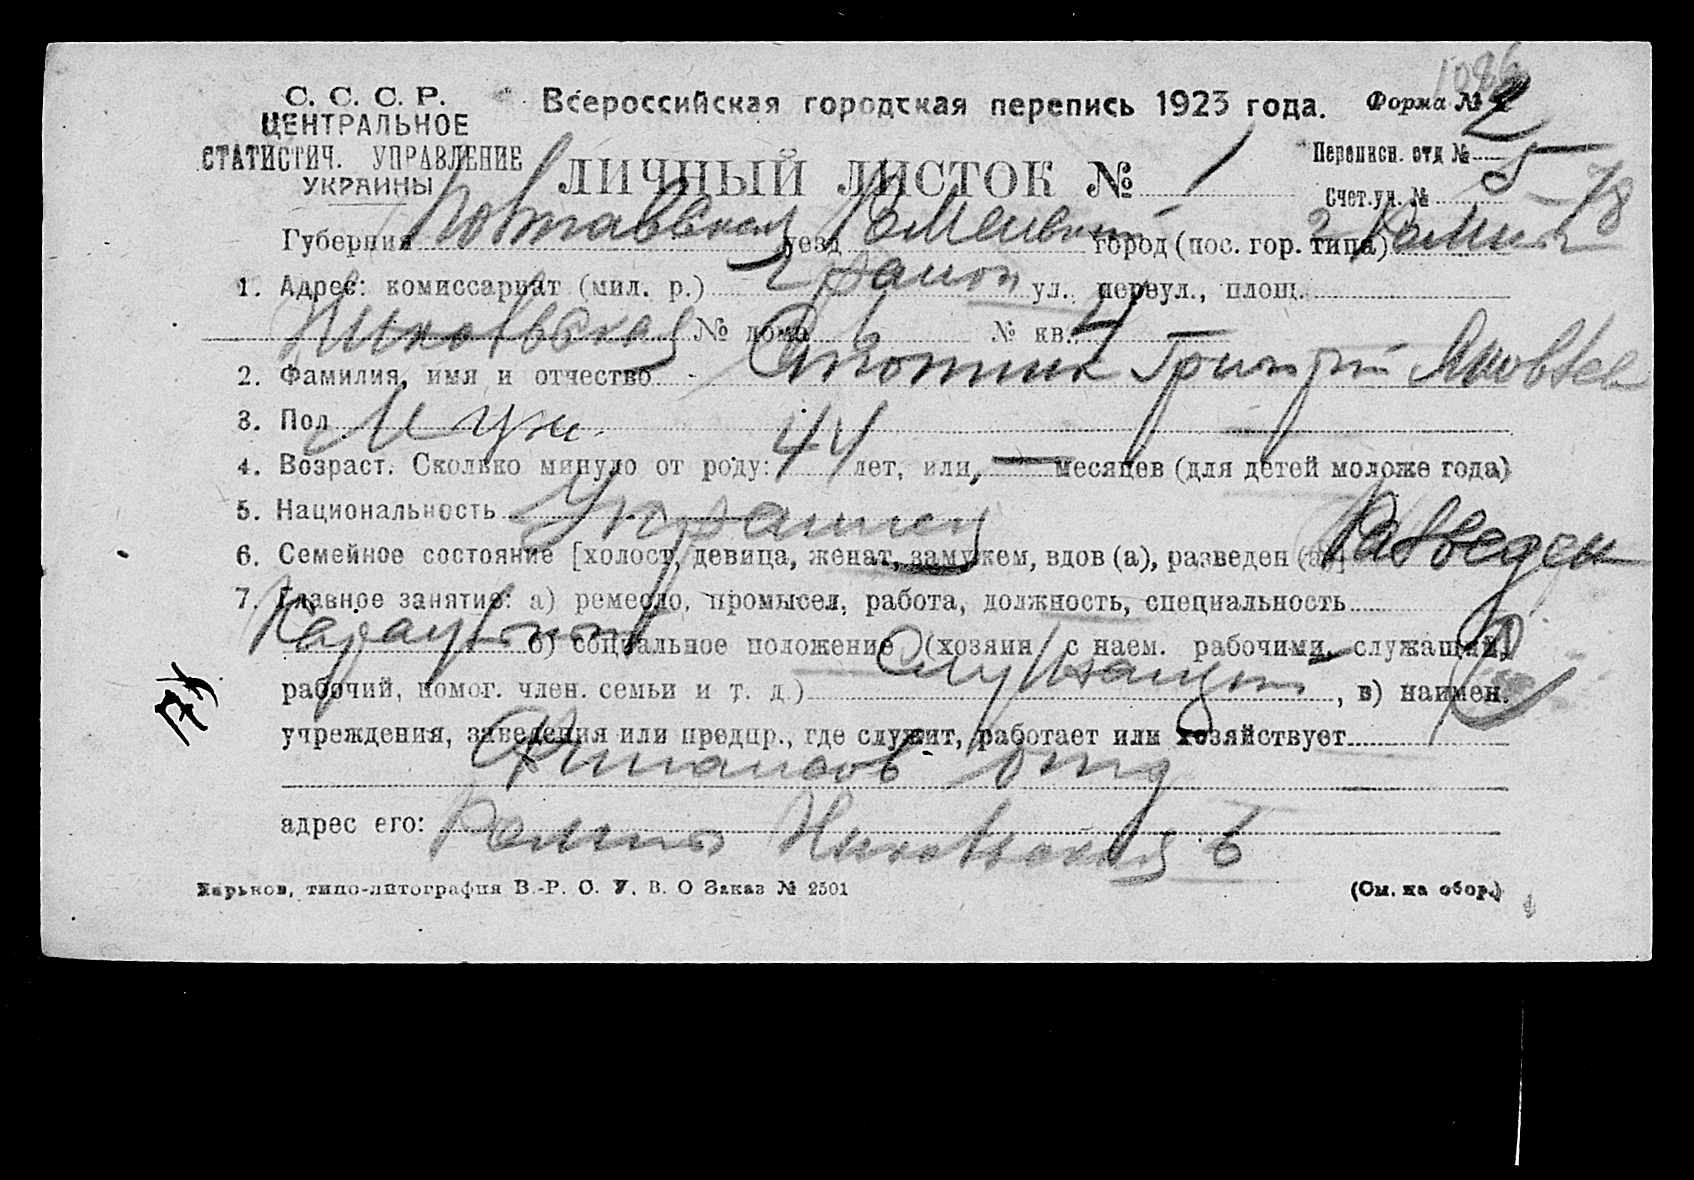 1086
С. С. С. Р.
ЦЕНТРАЛЬНОЕ
СТАТИСТИЧ. УПРАВЛЕНИЕ
УКРАИНЫ
Всероссийская городская перепись 1923 года.
Форма № 2
ЛИЧНЫЙ ЛИСТОК № 1
Переписн. отд № 5
Счет. уч. № 78
Губерния Полтавская уезд Роменский город (пос. гор. типа) г Ромны
1. Адрес: комиссариат (мил. р.) 2 район ул., переул., площ.
№ дома 6 № кв. 4
2. Фамилия, имя и отчество Григорий Яковлев
3. Пол Муж.
4. Возраст. Сколько минуло от роду: 44 лет, или, — месяцев (для детей моложе года)
5. Национальность Украинец
6. Семейное состояние [холост, девица, женат, замужем, вдов (а), разведен (а)] Разведен
7. Главное занятие: а) ремесло, промысел, работа, должность, специальность
Караульный б) социальное положение (хозяин с наем. рабочими, служащий,
рабочий, помог. член. семьи и т. д.) Служащий, в) наимен.
учреждения, заведения или предпр., где служит, работает или хозяйствует
Финансов отд
адрес его: Ромны 6
Харьков, типо-литография В.-Р. С. У. В. О Заказ № 2501
(См. на обор.)